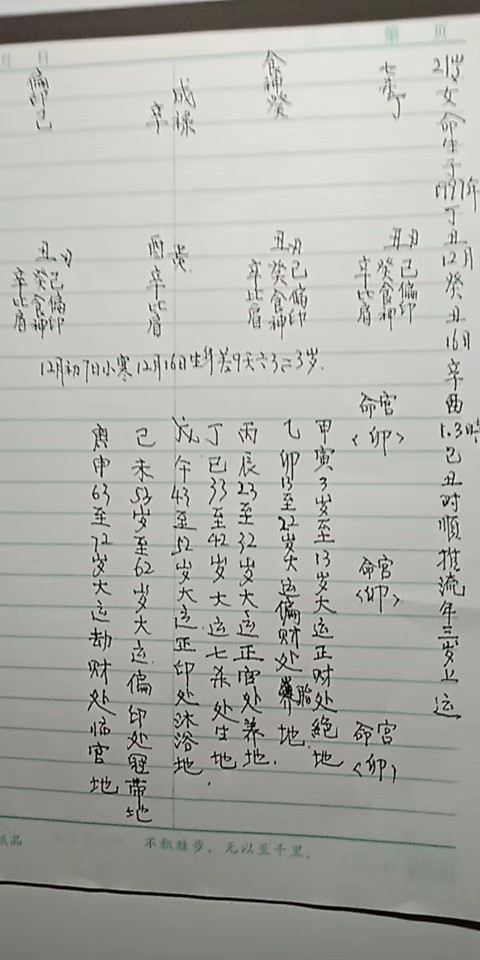 第 页
月 日
21岁女命生于1997年丁丑12月癸丑16日辛酉1.3時己丑时順推流年三岁上运
七杀丁
食神癸
戍禄
辛
偏印己
丑月
己偏印
癸食神
辛比肩
丑月
己偏印
癸食神
辛比肩
酉
辛比肩
丑月
己偏印
癸食神
辛比肩
12月初7日小寒12月16日生
差9天
3岁.
命宫
<卯>
命宫
<卯>
命宫
<卯>
甲寅3岁至13岁大运正财处絶地
乙卯13至22岁大运偏财处胎地.
丙辰23至32岁大运正官处养地.
丁巳33至42岁大运七杀处生地.
戊午43至52岁大运正印处沐浴地
己未53岁至62岁大运偏印处冠带地
庚申63至72岁大运劫财处临官地
纸品
不积跬步，无以至千里.